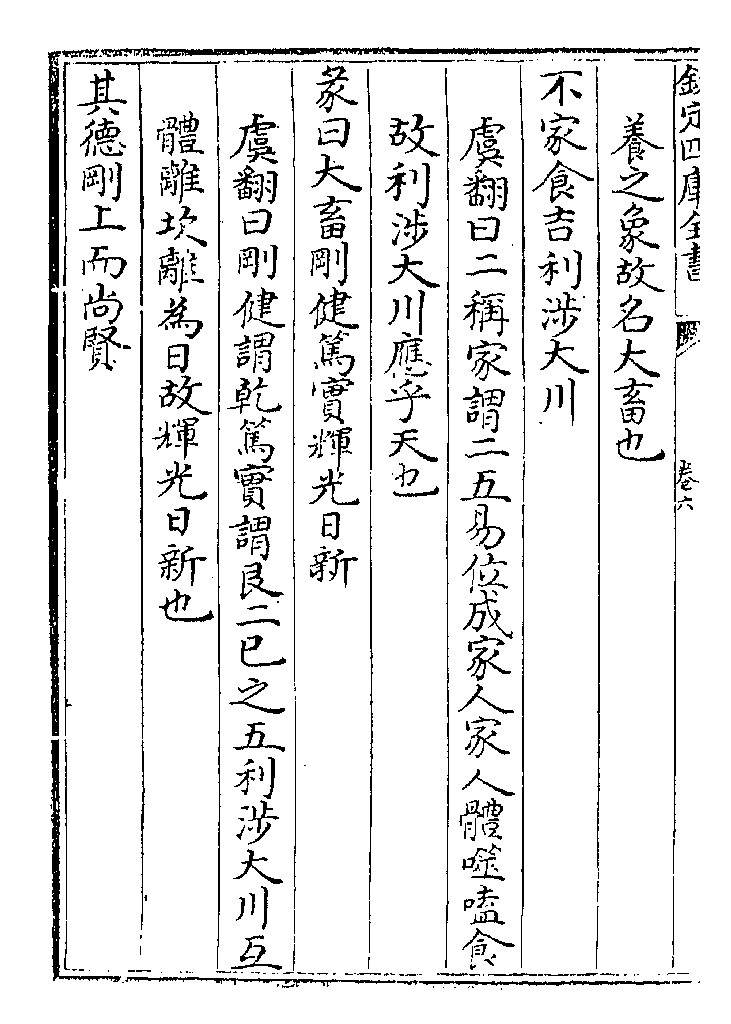 欽定四庫全書
卷六
養之象故名大畜也
不家食吉利涉大川
虞翻曰二稱家謂二五易位成家人家人體噬嗑食
故利涉大川應乎天也
彖曰大畜剛健篤實輝光日新
虞翻曰剛健謂乾篤實謂艮二已之五利涉大川互
體離坎離為日故輝光日新也
其德剛上而尚賢